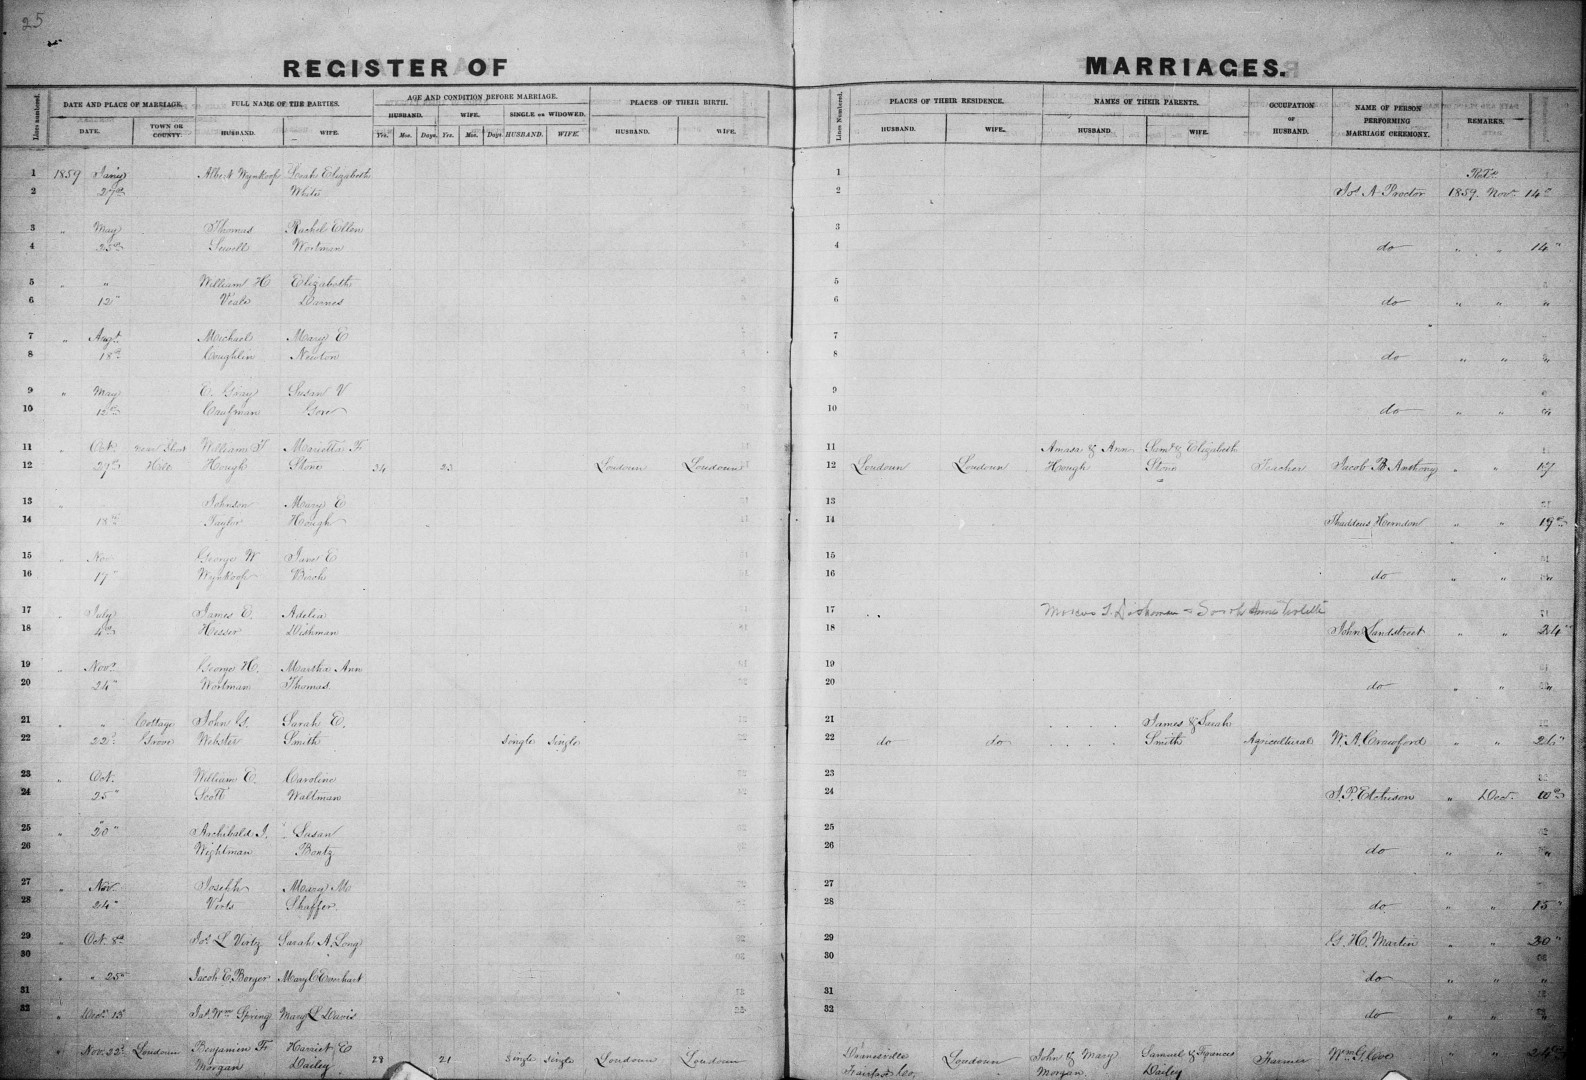 25
REGISTER OF MARRIAGES.
Lines numbered.
DATE AND PLACE OF MARRIAGE.
DATE.
TOWN OR COUNTY.
FULL NAME OF THE PARTIES.
HUSBAND.
WIFE.
AGE AND CONDITION BEFORE MARRIAGE.
HUSBAND.
WIFE.
SINGLE OR WIDOWED.
Yrs. Mos. Days. Yrs. Mos. Days HUSBAND. WIFE.
PLACES OF THEIR BIRTH.
HUSBAND.
WIFE.
Lines Numbered.
PLACES OF THEIR RESIDENCE.
HUSBAND.
WIFE.
NAMES OF THEIR PARENTS.
HUSBAND.
WIFE.
OCCUPATION OF HUSBAND.
NAME OF PERSON PERFORMING MARRIAGE CEREMONY.
REMARKS.
1 1859 Jany Albert Wynkoop Leah Elizabeth 1
2 27th White 2 Jos A Proctor 1859 Nov. 14th
3 " May Thomas Rachel Ellen 3
4 Sewell Wortman 4 do " " 14"
5 " " William H Elizabeth 5
6 12" Veale Darnes 6 do " " "
7 " Augt. Michael Mary E 7
8 18th Coughlin Newton 8 do " " "
9 " May E. Gray Susan V 9
10 12th Caufman Gore 10 do " " "
11 " Oct. near Short William T Marietta F. 11 Amasa & Ann Saml & Elizabeth
12 27th Hill Hough Stone 24 23 Loudoun Loudoun 12 Loudoun Loudoun Hough Stone Teacher Jacob B. Anthony " " 17
13 " Johnson Mary E 13
14 18th Taylor Hough 14 Thaddeus Herndon " " 19th
15 " Nov George W Jane E 15
16 17" Wynkoop Birch 16 do " " "
17 " July James E. Adelia 17 Marcus T. Dishman
18 4th Hesser Dishman 18 John Landstreet " " 24"
19 " Nov. George H. Martha Ann 19
20 24" Wortman Thomas 20 do " " "
21 " " Cottage John G. Sarah E. 21 James & Sarah
22 22d Grove Webster Smith single single 22 do do Smith Agricultural W. A. Crawford " " 26"
23 " Oct. William E. Caroline 23
24 25" Scott Waltman 24 S. P. Etchison " Dec. 10th
25 " " 20" Archibald J. Susan 25
26 Wightman Bontz 26 do " " "
27 " Nov. Joseph Mary M 27
28 24" Virts Shaffer. 28 do " " 15"
29 " Oct. 8th Jos. L Virtz Sarah A. Long 29 G. H. Martin " " 30"
30 30
" " 25" Jacob E. Borger Mary C Everhart do " " "
31 31
32 " Dec. 15 Jas. Wm Spring Mary L Davis 32 do " " "
" Nov. 22d Loudoun Benjamin F. Harriet E 28 21 single single Loudoun Loudoun Dranesville Loudoun John & Mary Samuel & Frances Farmer Wm G. Coe " "
Morgan Dailey Fairfax Co. Morgan Dailey